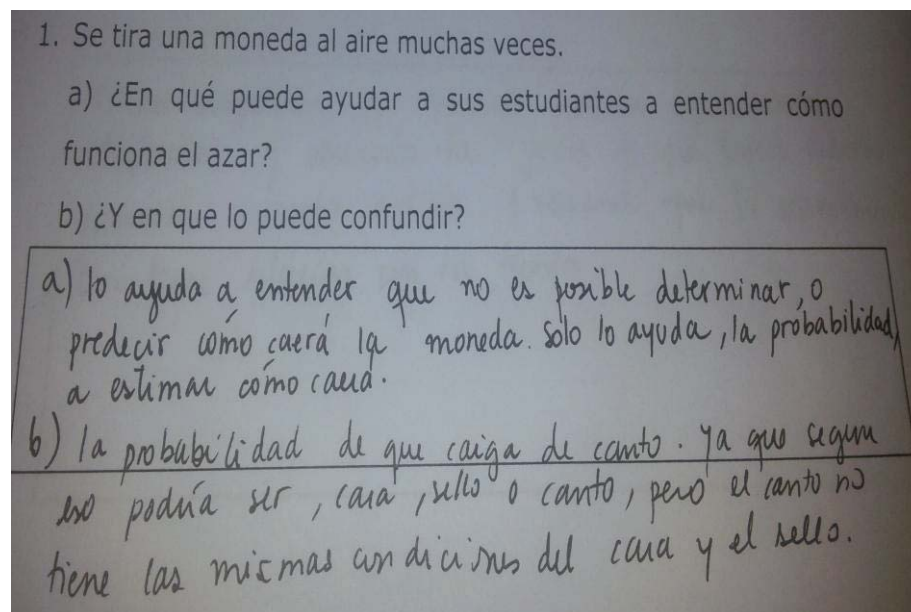 1. Se tira una moneda al aire muchas veces.
a) ¿En qué puede ayudar a sus estudiantes a entender cómo
funciona el azar?
b) ¿Y en que lo puede confundir?
a) lo ayuda a entender que no es posible determinar, o
predecir cómo caerá la moneda. Solo lo ayuda, la probabilidad,
a estimar cómo caerá.
b) la probabilidad de que caiga de canto. Ya que segun
eso podría ser, cara, sello o canto, pero el canto no
tiene las mismas condiciones del cara y el sello.